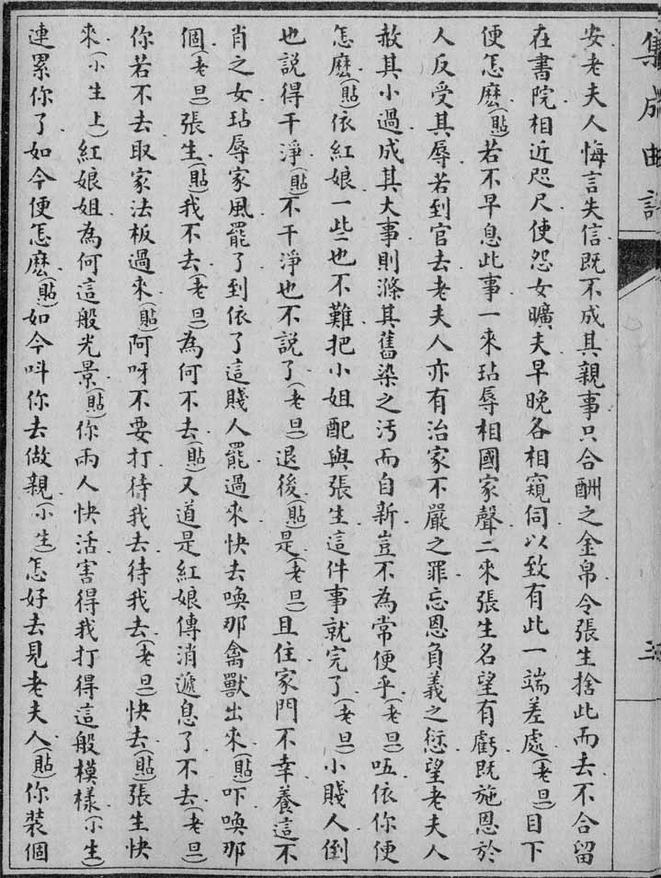 集成曲譜
三
安老夫人悔言失信既不成其親事只合酬之金帛令張生捨此而去不合留
在書院相近咫尺使怨女曠夫早晚各相窺伺以致有此一端差處(老旦)目下
便怎麽(貼)若不早息此事一來玷辱相國家聲二來張生名望有虧既施恩於
人反受其辱若到官去老夫人亦有治家不嚴之罪忘恩負義之愆望老夫人
赦其小過成其大事則滌其舊染之汚而自新豈不為常便乎(老旦)咓依你便
怎麽(貼)依紅娘一些也不難把小姐配與張生這件事就完了(老旦)小賤人倒
也説得干淨(貼)不干淨也不説了(老旦)退後(貼)是(老旦)且住家門不幸養這不
肖之女玷辱家風罷了到依了這賤人罷過來快去喚那禽獸出來(貼)吓喚那
個(老旦)張生(貼)我不去(老旦)為何不去(貼)又道是紅娘傳消遞息了不去(老旦)
你若不去取家法板過來(貼)阿呀不要打待我去待我去(老旦)快去(貼)張生快
來(小生上)紅娘姐為何這般光景(貼)你兩人快活害得我打得這般模樣(小生)
連累你了如今便怎麽(貼)如今呌你去做親(小生)怎好去見老夫人(貼)你裝個